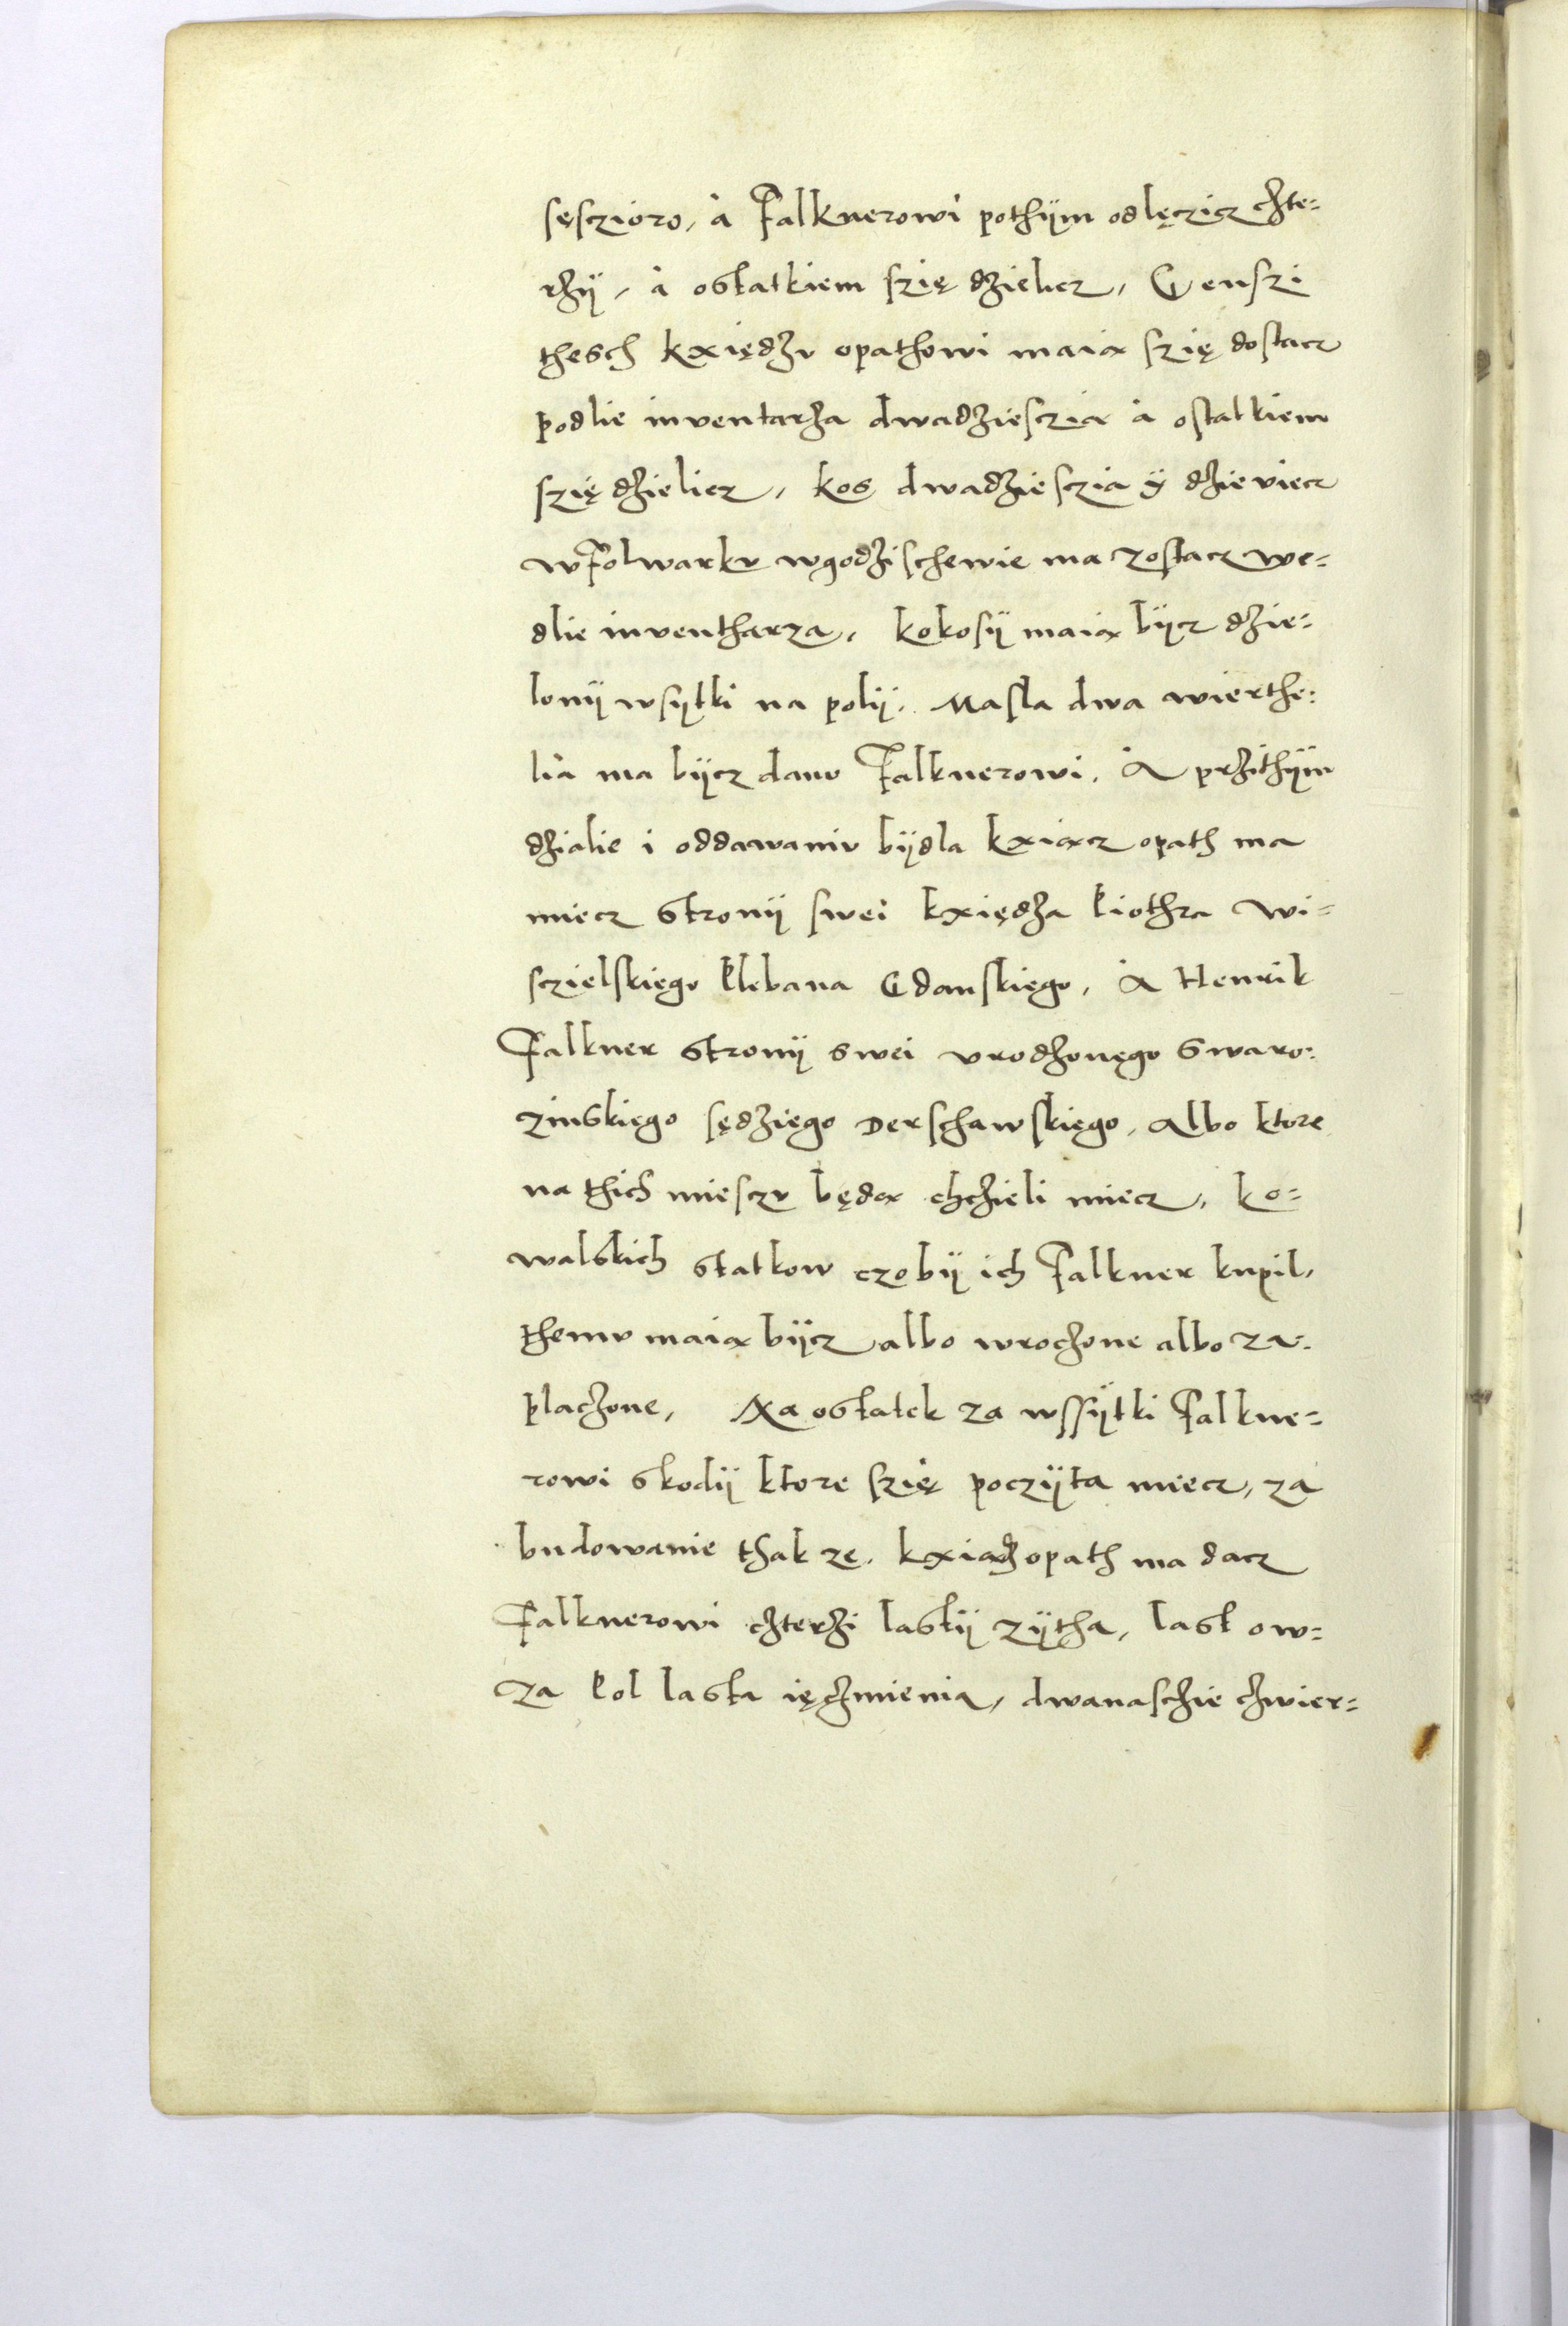 sęsczioro, à Falknerowi pothÿm odlęczicz chte=
rzÿ, à ostatkiem szię dzielicz, Genszi
thesch kxiędzv opathowi maia szię dostacz
podlie inventarza dwadziesczia à ostatkiem
szię dzielicz, kos dwadziesczia ÿ dzieviecz
wFolwarkv wgodzischewie ma zostacz we=
dlie inventharza, kokosÿ maia bÿcz dzie=
lonÿ wsytki na polÿ. Masla dwa wierthe=
lia ma bÿcz dano Falknerowi. A przithÿm
dzialie i oddawaniv bÿdla kxiacz opath ma
miecz stronÿ swei kxiędza Piothra Wi=
sczielskiego Plebana Gdanskiego, A Henrik
Falkner stronÿ swei vrodzonęgo Swaro=
zinskiego sędziego Derschawskięgo, Albo ktore
na thich miesczv będa chczieli miecz, Ko=
walskich statkow czobÿ ich Falkner kupil,
themv maia bÿcz albo wroczone albo za=
placzone, Na ostatek za wssÿtki Falkne=
rowi skodÿ ktore szię poczÿta miecz, za
budowanie thak ze. kxiadz opath ma dacz
Falknerowi czterzi lastÿ zÿtha, last ow=
za pol lasta ięczmienia, dwanasczie czwier=